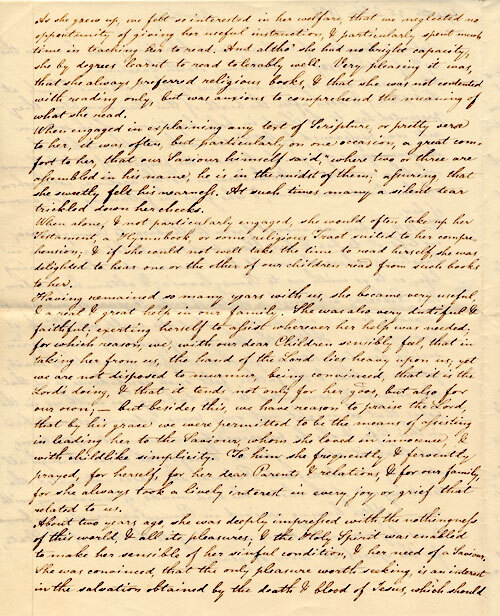 As she grew up, we felt so interested in her welfare, that we neglected no
oppertunity of giving her useful instruction, & particularly spent much
time in teaching her to read. And altho' she had no bright capacity,
she by degrees learnt to read tolerably well. Very pleasing it was,
that she always preferred religious books, & that she was not contented
with reading only, but was anxious to comprehend the meaning of
what she read.
When engaged in explaining any text of Scripture, or pretty verse
to her, it was often, but particularly on one occasion, a great com-
fort to her, that our Saviour himself said, "where two or three are
assembled in his name, he is in the midst of them; assuring that
she sweetly felt his nearness. At such times many a silent tear
trickled down her cheeks.
When alone, & not particularly engaged, she would often take up her
Testament, a Hymnbook, or some religious Tract suited to her compre-
hension; & if she could not well take the time to read herself, she was
delighted to hear one or the other of our children read from such books
to her.
Having remained so many years with us, she became very useful,
& a real & great help in our family. She was also very dutiful &
faithful, exerting herself to assist wherever her help was needed;
for which reason, we, with our dear Children sensibly feel, that in
taking her from us, the hand of the Lord lies heavy upon us; yet
we are not disposed to murmur, being convinced, that it is the
Lord's doing, & that it tends, not only for her good, but also for
our own; — but besides this, we have reason to praise the Lord,
that by his grace we were permitted to be the means of assisting
in leading her to the Saviour, whom she loved in innocence, &
with childlike simplicity. To him she frequently & fervently
prayed, for herself, for her dear Parents & relations, & for our family,
for she always took a lively interest in every joy or grief that
related to us.
About two years ago, she was deeply impressed with the nothingness
of this world & all its pleasures, & the Holy Spirit was enabled
to make her sensible of her sinful condition, & her need of a Saviour.
She was convinced, that the only pleasure worth seeking, is an interest
in the salvation obtained by the death & blood of Jesus, which should